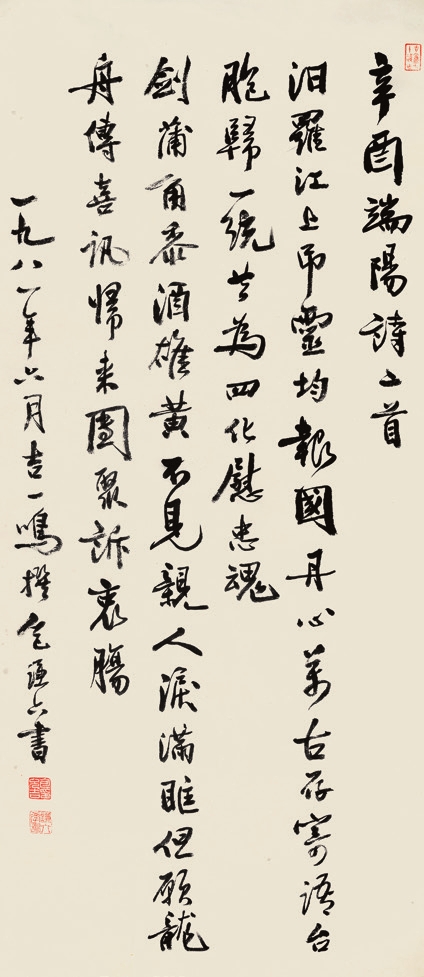 辛酉端陽詩二首
汨羅江上吊靈均報國丹心萬古存寄語台
胞歸一統共為四化慰忠魂
劍蒲角黍酒雄黃不見親人淚滿眶但願龍
舟傳喜訊歸來團聚訴衷腸
一九八一年六月吉一鳴撰 包謙六書